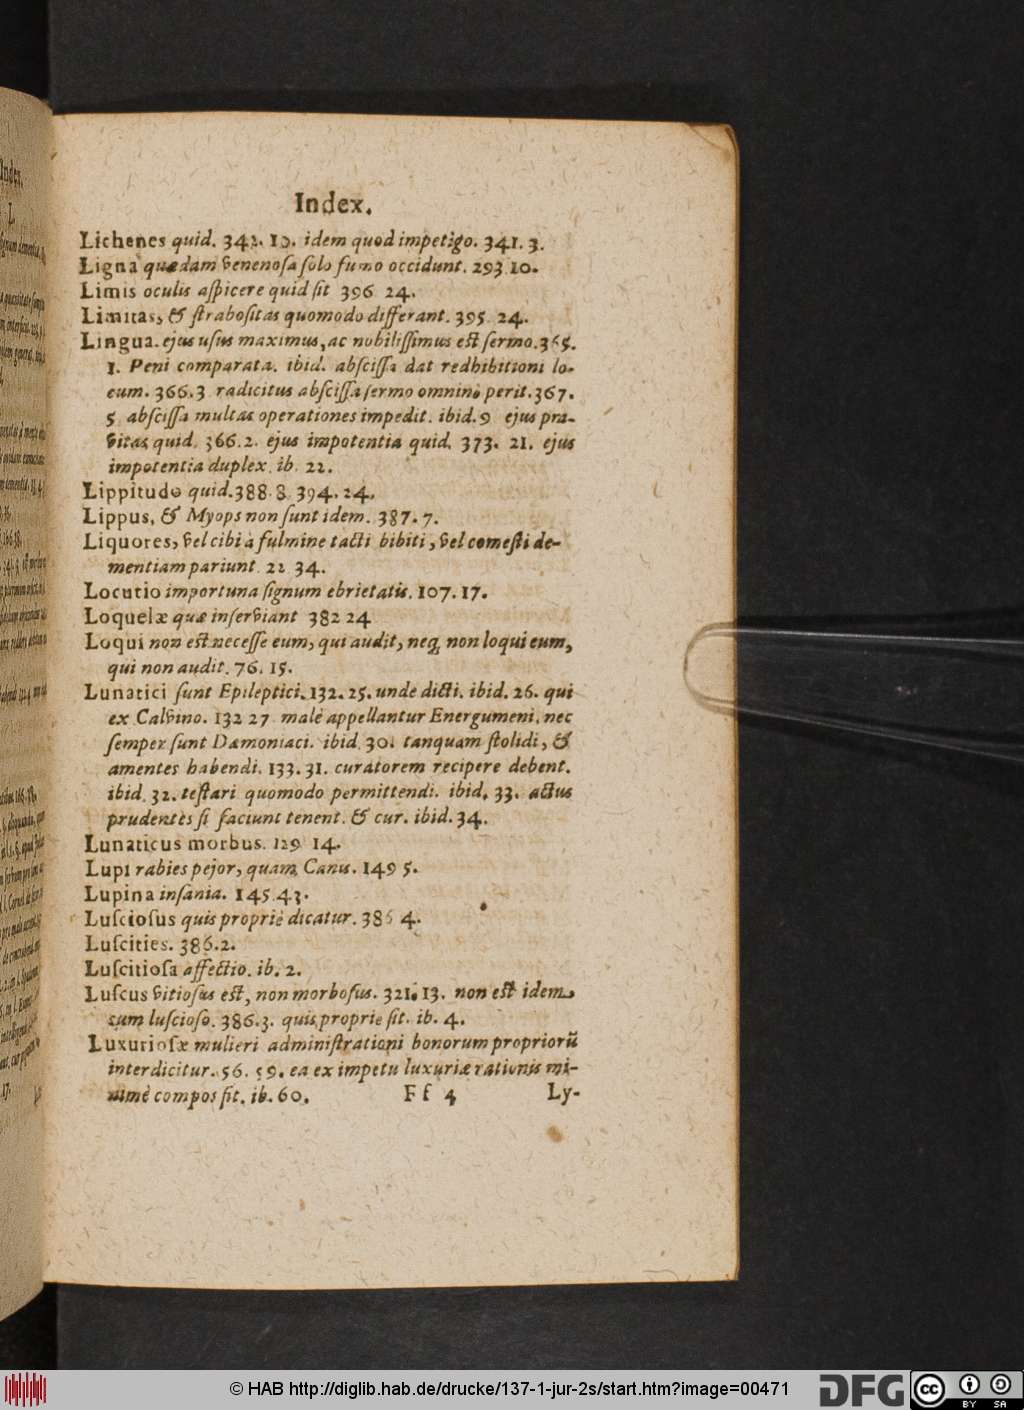 Index.
Lichenes quid. 342. 10. idem quod impetigo. 341. 3.
Ligna quædam venenoſa ſolo fumo occidunt. 293 10.
Limis oculis aſpicere quid ſit 396 24.
Limitas, & ſtraboſitas quomodo differant. 395. 24.
Lingua. ejus uſus maximus, ac nobiliſſimus eſt ſermo. 365.
1. Peni comparata. ibid. abſciſſa dat redhibitioni lo-
cum. 366. 3 radicitus abſciſſa ſermo omninò perit. 367.
5 abſciſſa multas operationes impedit. ibid. 9 ejus pra-
vitas quid. 366. 2. ejus impotentia quid. 373. 21. ejus
impotentia duplex. ib. 22.
Lippitudo quid. 388. 8. 394. 24.
Lippus, & Myops non ſunt idem. 387. 7.
Liquores, vel cibi à fulmine tacti bibiti, vel comeſti de-
mentiam pariunt. 22 34.
Locutio importuna ſignum ebrietatis. 107. 17.
Loquelæ quæ inſerviant 382 24
Loqui non eſt neceſſe eum, qui audit, neq; non loqui eum,
qui non audit. 76. 15.
Lunatici ſunt Epileptici. 132. 25. unde dicti. ibid. 26. qui
ex Calvino. 132 27 malè appellantur Energumeni. nec
ſemper ſunt Dæmoniaci. ibid. 30. tanquam ſtolidi, &
amentes habendi. 133. 31. curatorem recipere debent.
ibid. 32. teſtari quomodo permittendi. ibid. 33. actus
prudentes ſi faciunt tenent. & cur. ibid. 34.
Lunaticus morbus. 129 14.
Lupi rabies pejor, quam Canis. 149 5.
Lupina inſania. 145. 43.
Luſcioſus quis propriè dicatur. 386 4.
Luſcities. 386. 2.
Luſcitioſa affectio. ib. 2.
Luſcus vitioſus eſt, non morboſus. 321. 13. non eſt idem
cum luſcioſo. 386. 3. quis proprie ſit. ib. 4.
Luxurioſæ mulieri adminiſtrationi bonorum propriorũ
interdicitur. 56. 59. ea ex impetu luxuriæ rationis mi-
nimè compos ſit. ib. 60.
Ff 4 Ly-
© HAB http://diglib.hab.de/drucke/137-1-jur-2s/start.htm?image=00471
DFG
cc BY SA